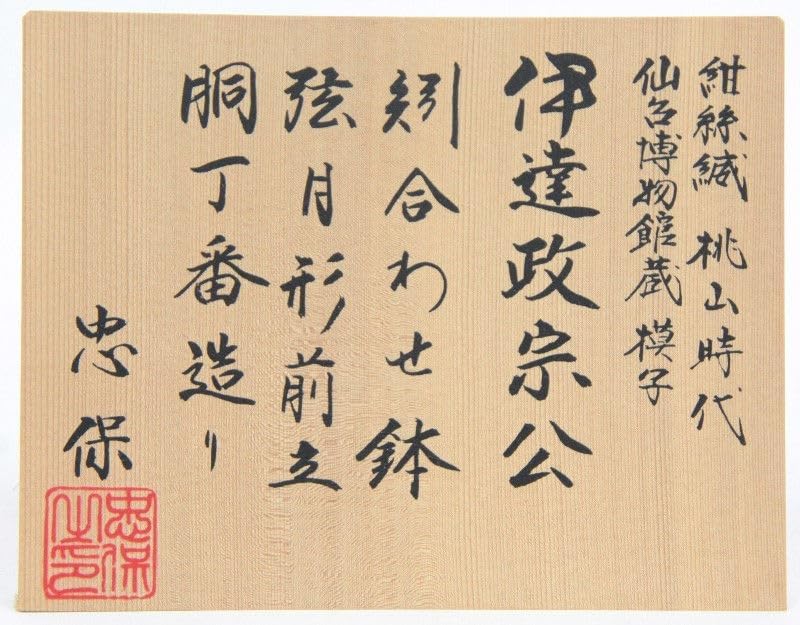 紺絲縅 桃山時代
仙台博物館蔵 模写
伊達政宗公
矧合わせ鉢
弦月形前立
胴丁番造り
忠保
忠保之印